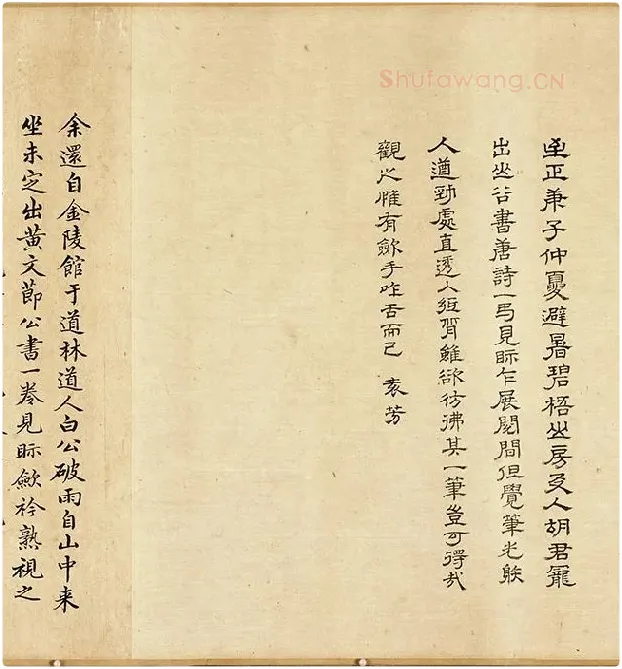 Shufawang.CN
至正庚子仲夏避暑碧梧山房友人胡君寵
出山谷書唐詩一弓見眎乍展閱間但覺筆光燄
人遒勁處直透入紙背雖欲彷彿其一筆豈可得哉
觀之惟有斂手咋舌而已 袁芳
余還自金陵館于道林道人白公破雨自山中来
坐未定出黄文節公書一卷見眎歛衿熟視之